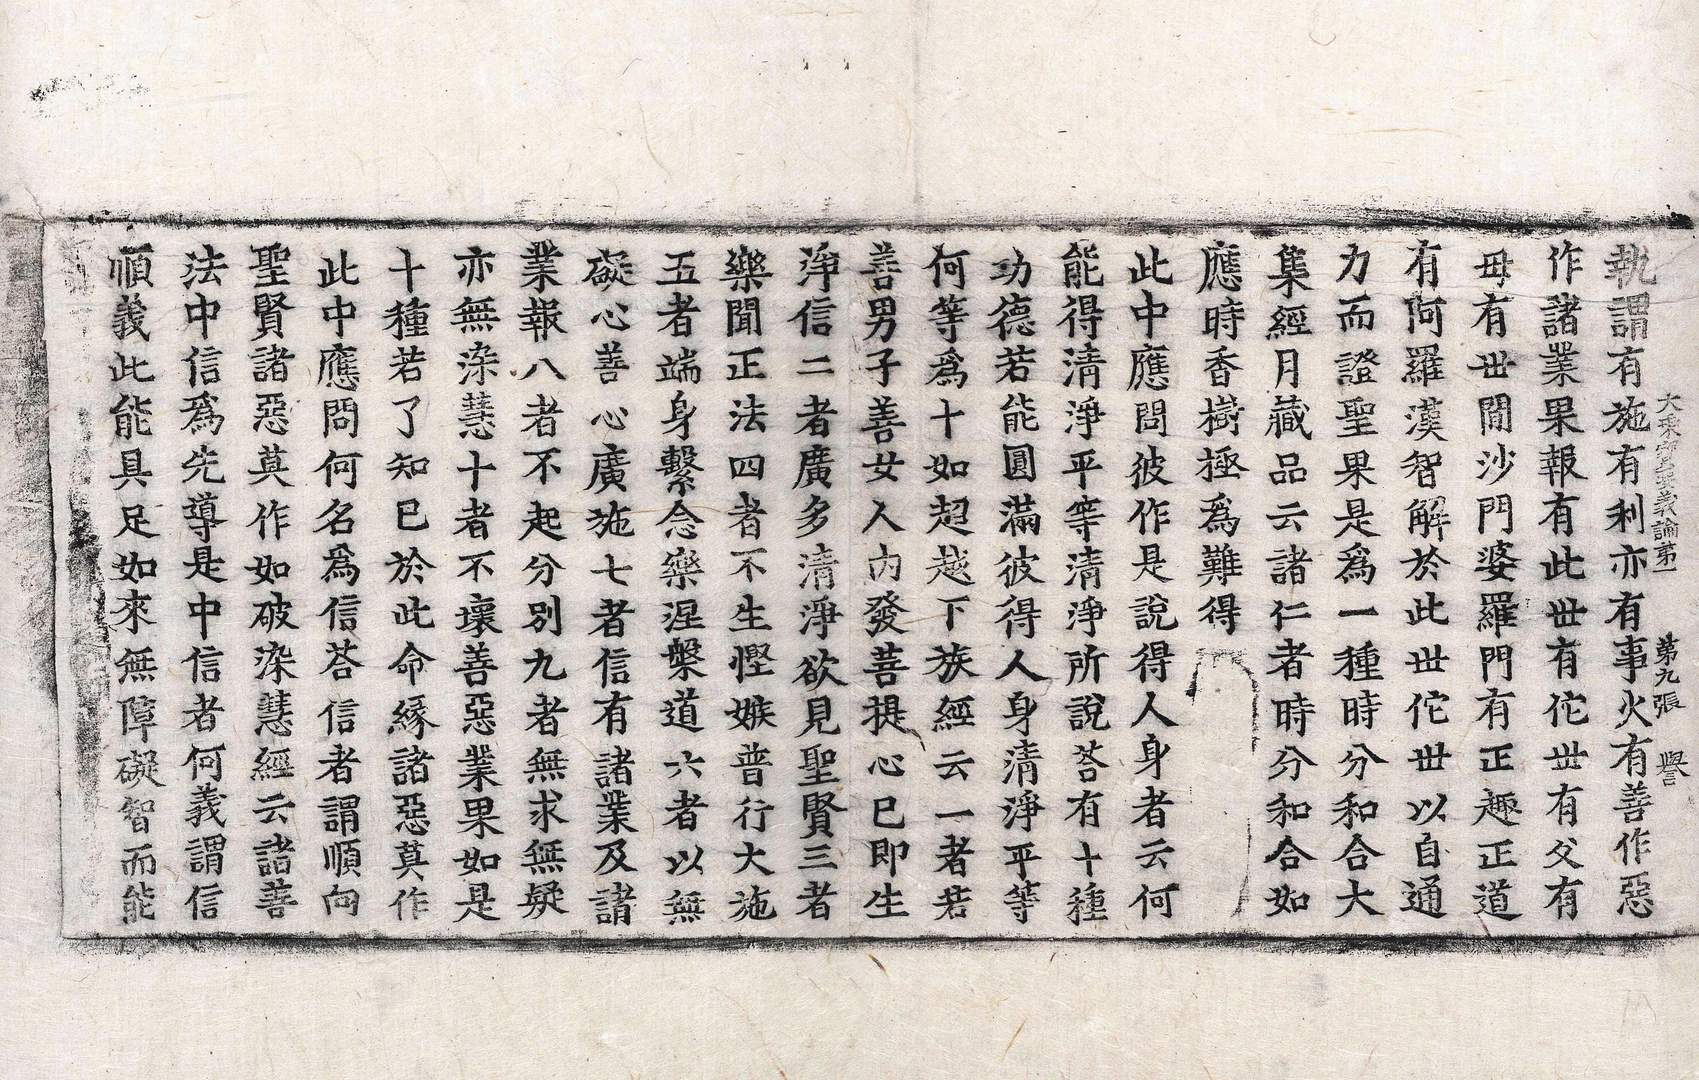 大乘寶要義論第一　第九張　譽
執謂有施有利亦有事火有善作惡
作諸業果報有此世有佗世有父有
母有世間沙門婆羅門有正趣正道
有阿羅漢智解於此世佗世以自通
力而證聖果是爲一種時分和合大
集經月藏品云諸仁者時分和合如
應時香樹極爲難得
此中應問彼作是說得人身者云何
能得清淨平等清淨所說荅有十種
功德若能圓滿彼得人身清淨平等
何等爲十如超越下族經云一者若
善男子善女人內發菩提心已即生
淨信二者廣多清淨欲見聖賢三者
樂聞正法四者不生慳嫉普行大施
五者端身繫念樂涅槃道六者以無
礙心善心廣施七者信有諸業及諸
業報八者不起分別九者無求無疑
亦無染慧十者不壞善惡業果如是
十種若了知已於此命緣諸惡莫作
此中應問何名爲信荅信者謂順向
聖賢諸惡莫作如破染慧經云諸善
法中信爲先導是中信者何義謂信
順義此能具足如來無障礙智而能